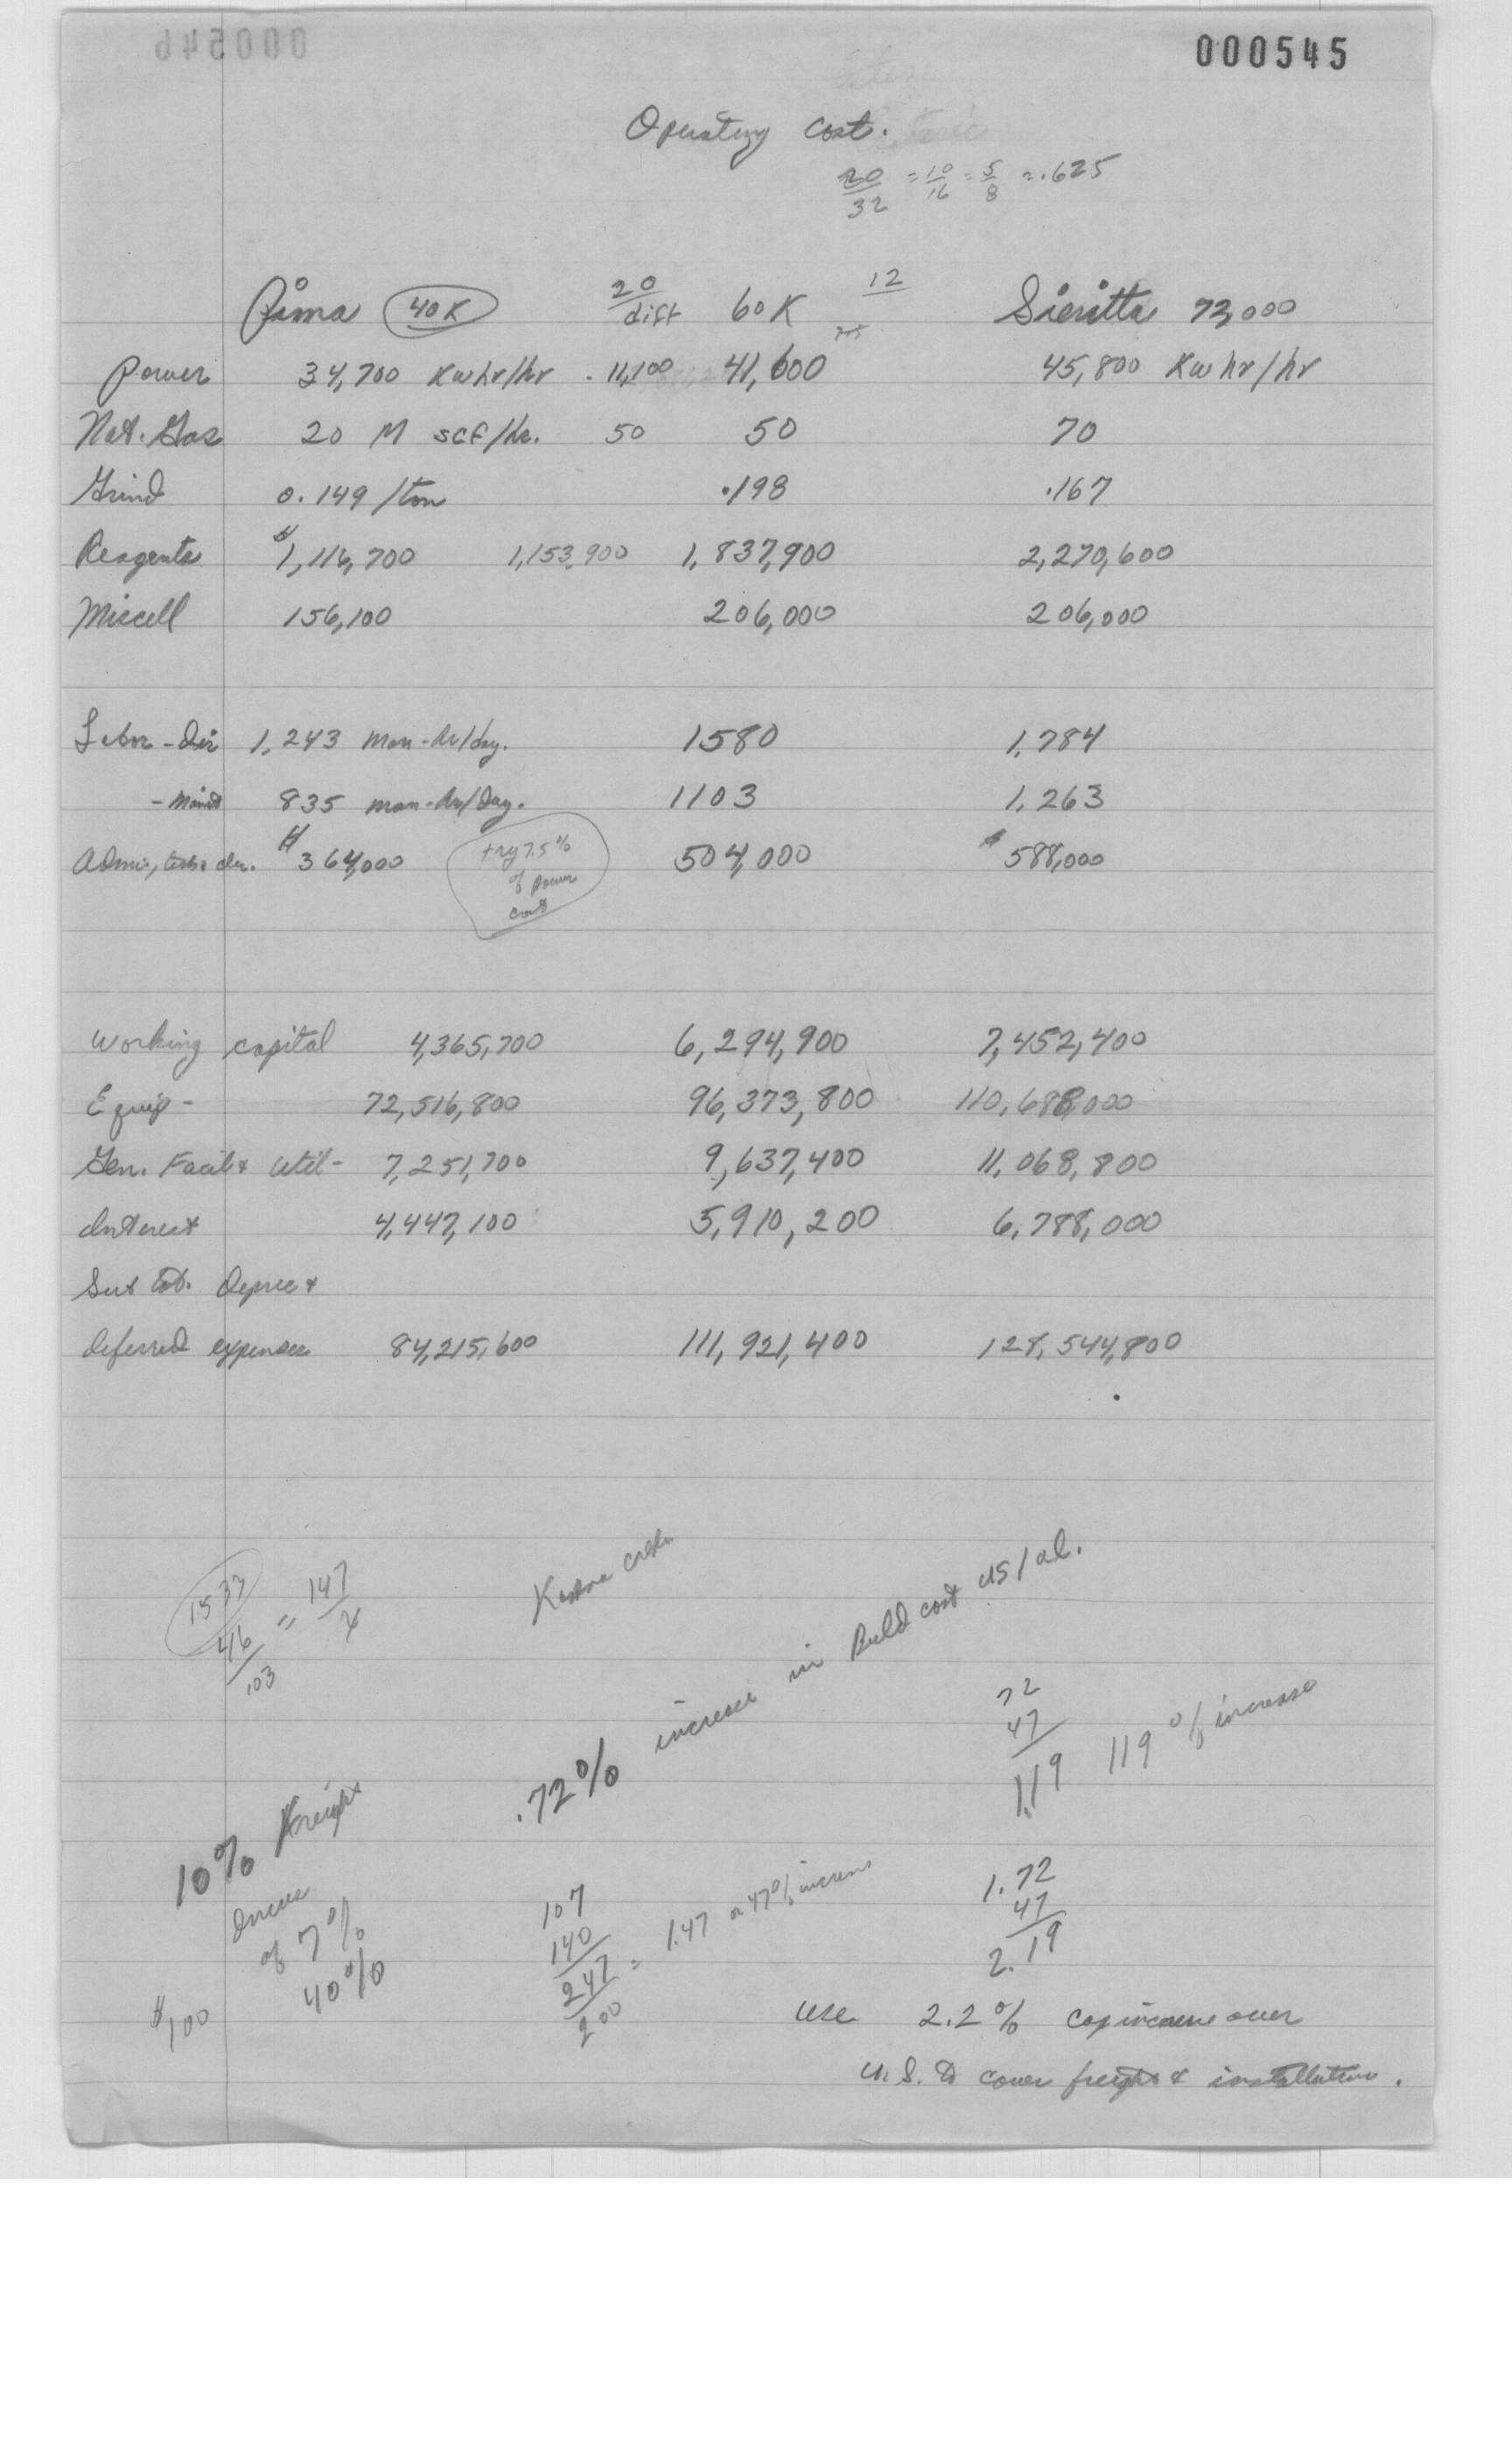 000545
Operating Cost.
20/32 = 10/16 = 5/8 = .625
Pima 40K 20 diff 60K 12 Sieritta 72,000
Power 34,700 Kwhr/hr 11,100 41,600 45,800 Kwhr/hr
Nat. Gas 20 M scf/hr. 50 50 70
Grind 0.149/ton .198 .167
Reagents $1,116,700 1,153,900 1,837,900 2,270,600
Miscell 156,100 206,000 206,000
Labor - Dir 1,243 man-hr/day. 1580 1,784
- Maint 835 man-hr/day. 1103 1,263
Admin, $364,000 504,000 $588,000
try 7.5%
of power
cost
Working capital 4,365,700 6,294,900 7,452,400
Equip - 72,516,800 96,373,800 110,688,000
Gen. Facil & Util - 7,251,700 9,637,400 11,068,800
Interest 4,447,100 5,910,200 6,788,000
Sub tot. Deprec &
deferred expenses 84,215,600 111,921,400 128,544,800
1533
46/103 = 147/x
.72% increase in Build cost US/al.
72
47
1.19 119% increase
10% Freight
of 7%
40%
$100
107
140
247
200
= 1.47 or 47% increase
1.72
47
2.19
use 2.2% cap increase over
U.S. to cover freight & installation.